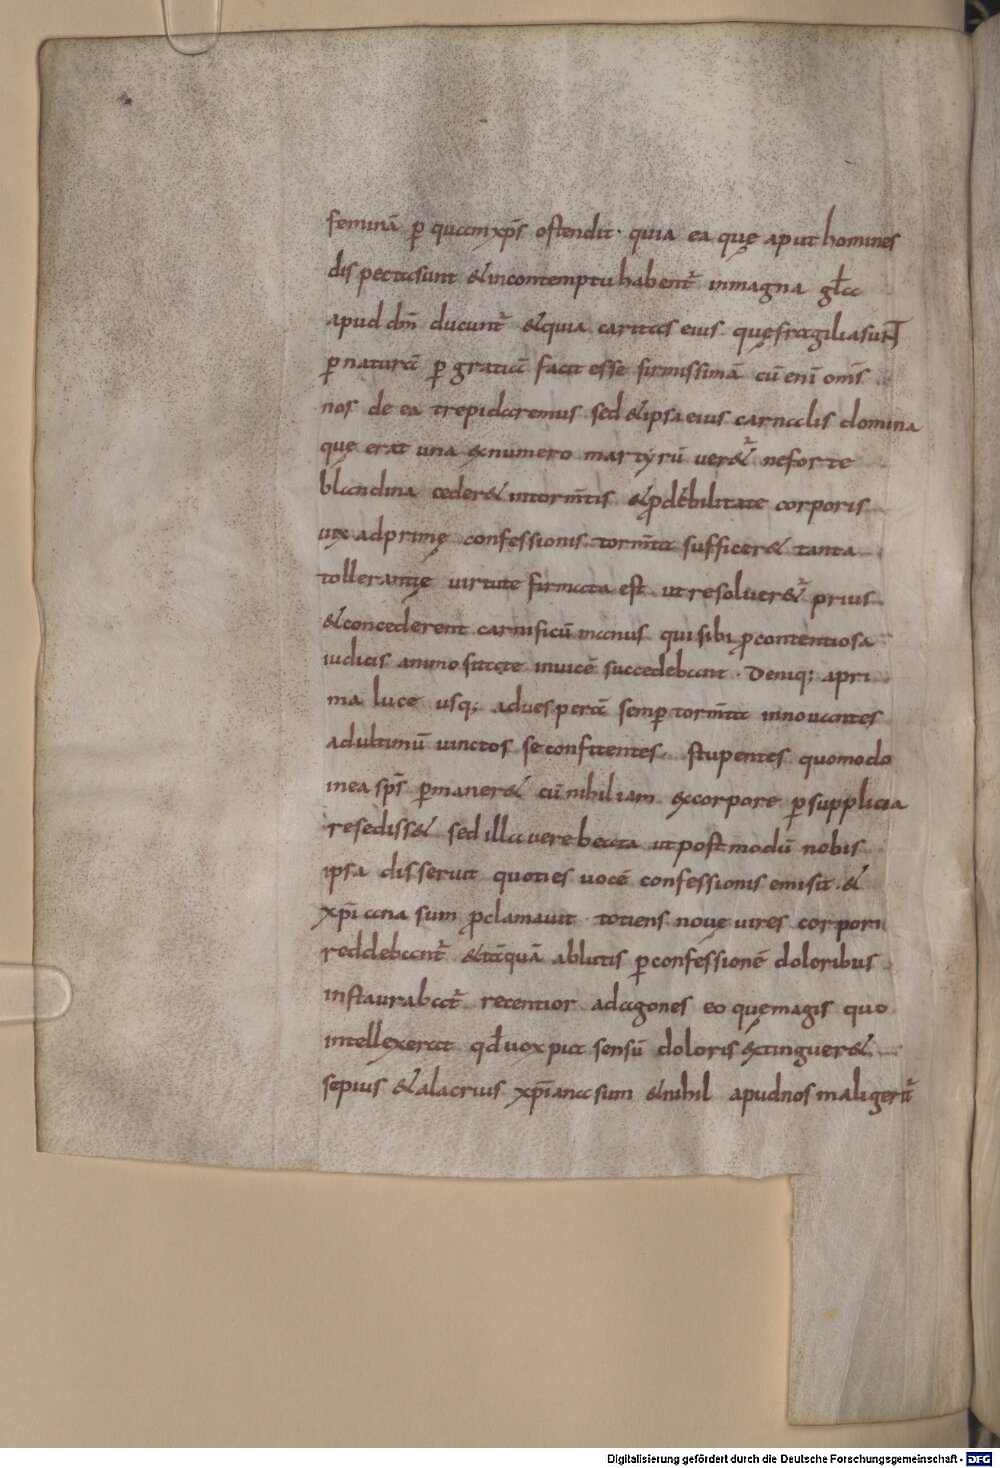 feminā ꝑ quam xp̄s ostendit· quia ea quę aput homines
dispecta sunt & in contemptu habent᷑ in magna gƚa
apud dm̄ ducunt᷑ & quia caritas eius quę fragilia sunt
ꝑ naturā ꝑ gratiā facit esse firmissimā cū eni om̄s
nos de ea trepidaremus sed & ipsa eius carnalis domina
quę erat una ex numero martyrū uer&᷑ ne forte
blandina ceder& in torm̄tis & ꝓ debilitate corporis
uix ad primę confessionis torm̄ta suffecer& tanta
tollerantię uirtute firmata est ut resoluer&᷑ prius
& concederent carnificū manus qui sibi ꝓ contentiosa
iudicis animo statę inuicē succedebant · Deniq; a pri
ma luce usq; ad uesperā semꝑ torm̄ta innouantes
ad ultimū uinctos se confitentes· stupentes quomodo
in ea sp̄s ꝑmaner& cū nihil iam ex corpore ꝑ supplicia
resediss& sed illa uere beata ut postmodū nobis
ipsa disseruit quoties uocē confessionis emisit· &
xp̄iana sum ꝓclamauit · totiens nouę uires corpori
reddebant᷑ & tāquā ablutis ꝑ confessionē doloribus
instaurabat᷑ recentior ad agones eo quę magis quo
intellexerat qd̄ uox pia sensū doloris extinguer&
sepius & alacrius xp̄iana sum & nihil apud nos mali gerit᷑
Digitalisierung gefördert durch die Deutsche Forschungsgemeinschaft - DFG